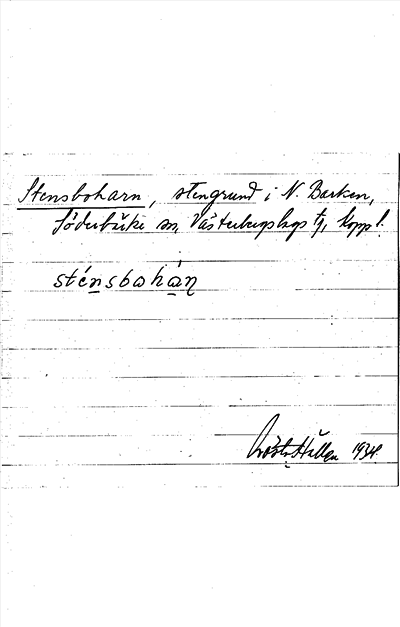 Stensboharn, stengrund i N. Barken,
Söderbärke sn, Västerbergslags tg, Kopp l.
sténsbohàn
1934.